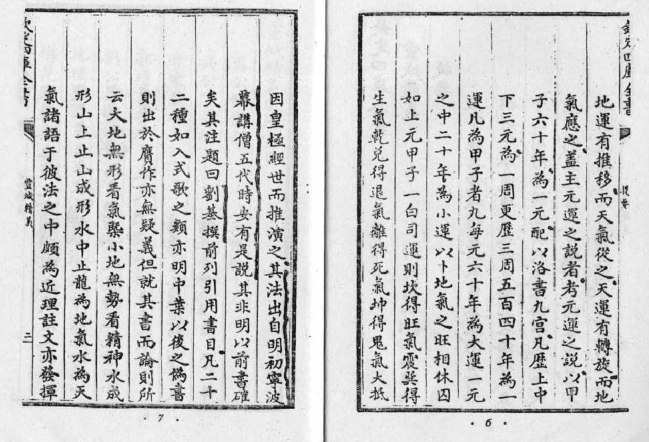 欽定四庫全書
提要
地運有推移而天氣從之天運有轉旋而地
氣應之蓋主元運之說者考元運之說以甲
子六十年為一元配以洛書九宮凡歷上中
下三元為一周更歷三周五百四十年為一
運凡為甲子者九每元六十年為大運一元
之中二十年為小運以卜地氣之旺相休囚
如上元甲子一白司運則坎得旺氣震巽得
生氣乾兌得退氣離得死氣坤得鬼氣大抵
6
因皇極經世而推演之其法出自明初寧波
幕講僧五代時安有是說其非明以前書確
矣其注題曰劉基撰前列引用書目凡二十
二種如入式歌之類亦明中葉以後之偽書
則出於贋作亦無疑義但就其書而論則所
云大地無形看氣槩小地無勢看精神水成
形山上止山成形水中止龍為地氣水為天
氣諸語于彼法之中頗為近理註文亦發揮
欽定四庫全書
靈城精義
二
7